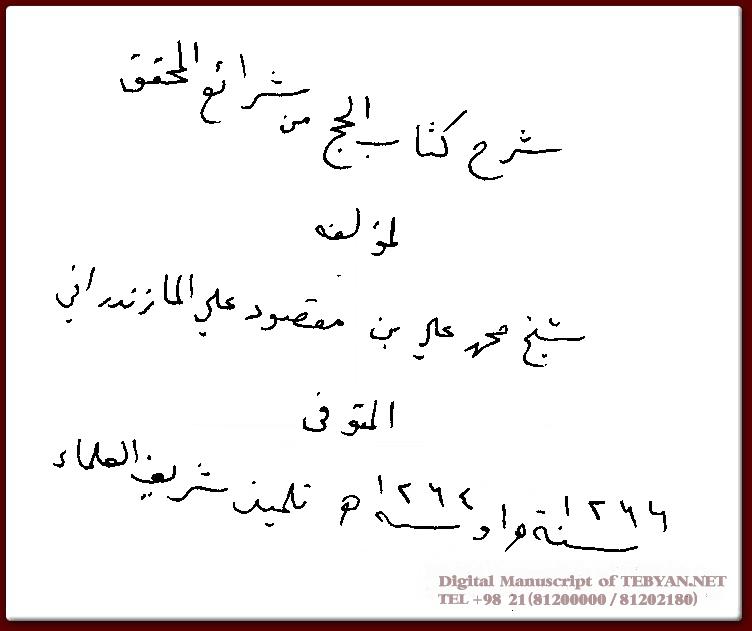 شرح كتاب الحج من شرائع المحقق
لمؤلفه
شيخ محمد علي بن مقصود علي المازندراني
المتوفى
سنة ١٢٦٦ ه او سنه ١٢٦٤ ه تلميذ شريف العلماء
Digital Manuscript of TEBYAN.NET
TEL +98 21(81200000 / 81202180)